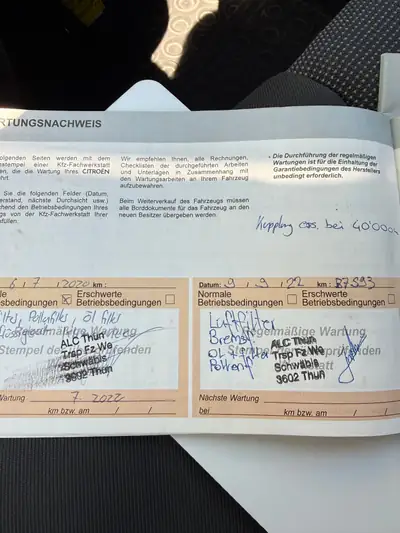 RTUNGSNACHWEIS
olgenden Seiten werden mit dem
estempel einer Kfz-Fachwerkstatt
en, die die Wartung Ihres CITROËN
hrt.
Sie die folgenden Felder (Datum,
erstand, nächste Durchsicht usw.)
chend den Betriebsbedingungen Ihres
gs von der Kfz-Fachwerkstatt Ihrer
füllen.
Wir empfehlen Ihnen, alle Rechnungen,
Checklisten der durchgeführten Arbeiten
und Unterlagen in Zusammenhang mit
den Wartungsarbeiten an Ihrem Fahrzeug
aufzubewahren.
Beim Weiterverkauf des Fahrzeugs müssen
alle Borddokumente für das Fahrzeug an den
neuen Besitzer übergeben werden
• Die Durchführung der regelmäßigen
Wartungen ist für die Einhaltung der
Garantiebedingungen des Herstellers
unbedingt erforderlich.
Kupplung ers. bei
6 / 7 / 2020 km :
le Erschwerte
sbedingungen Betriebsbedingungen
Pollenfilter, Öl filter
Regelmäßige Wartung
Stempel des
ALC Thun
Trsp Fz We
Schwäbis
3602 Thun
Wartung 7. 2022
km bzw. am / /
Datum: 9 / 9 / 22 km :
Normale Erschwerte
Betriebsbedingungen Betriebsbedingungen
Luftfilter
Regelmäßige Wartung
Brems
ÖL
Pollen
ALC Thun
Trsp Fz We
Schwäbis
3602 Thun
Nächste Wartung
bei km bzw. am / /